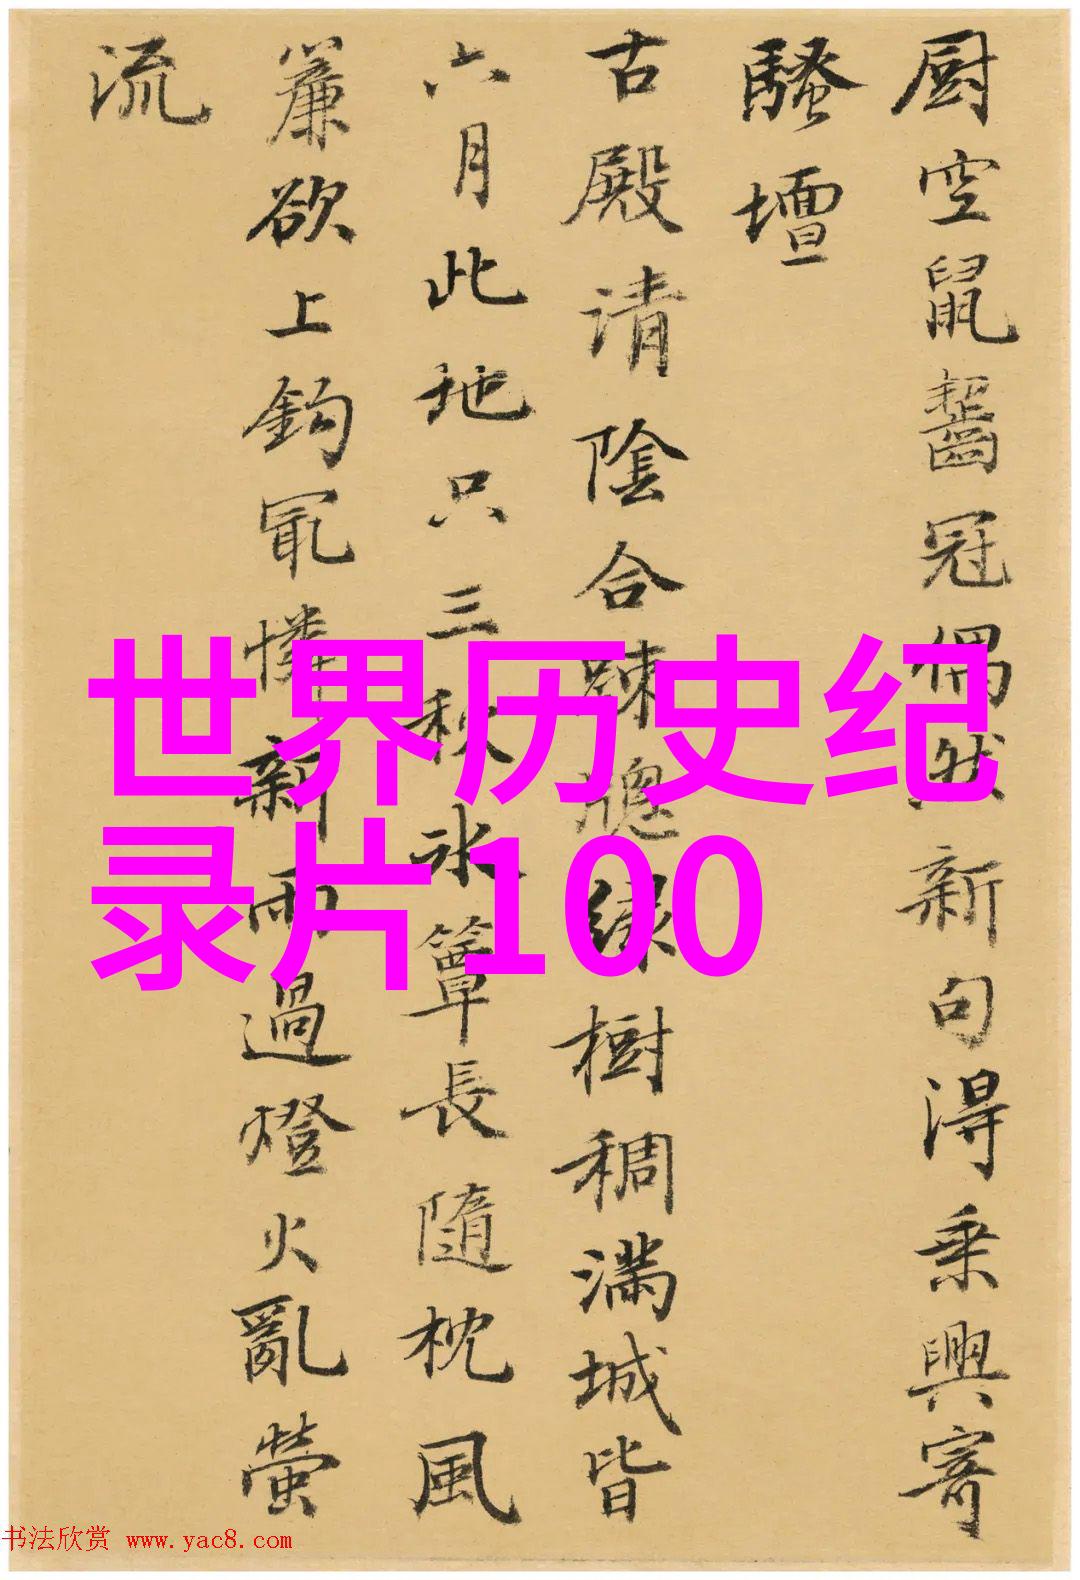 厨空鼠齧冠偶然新句得乗興寄
騷壇
古殿请陰合踈牕緑樹稠满城皆
六月此地只三秋氷簟長隨枕風
簾欲上鈎冣憐新雨過燈火亂螢
流
世界历史纪
录片100
书法欣赏 www.yac8.com